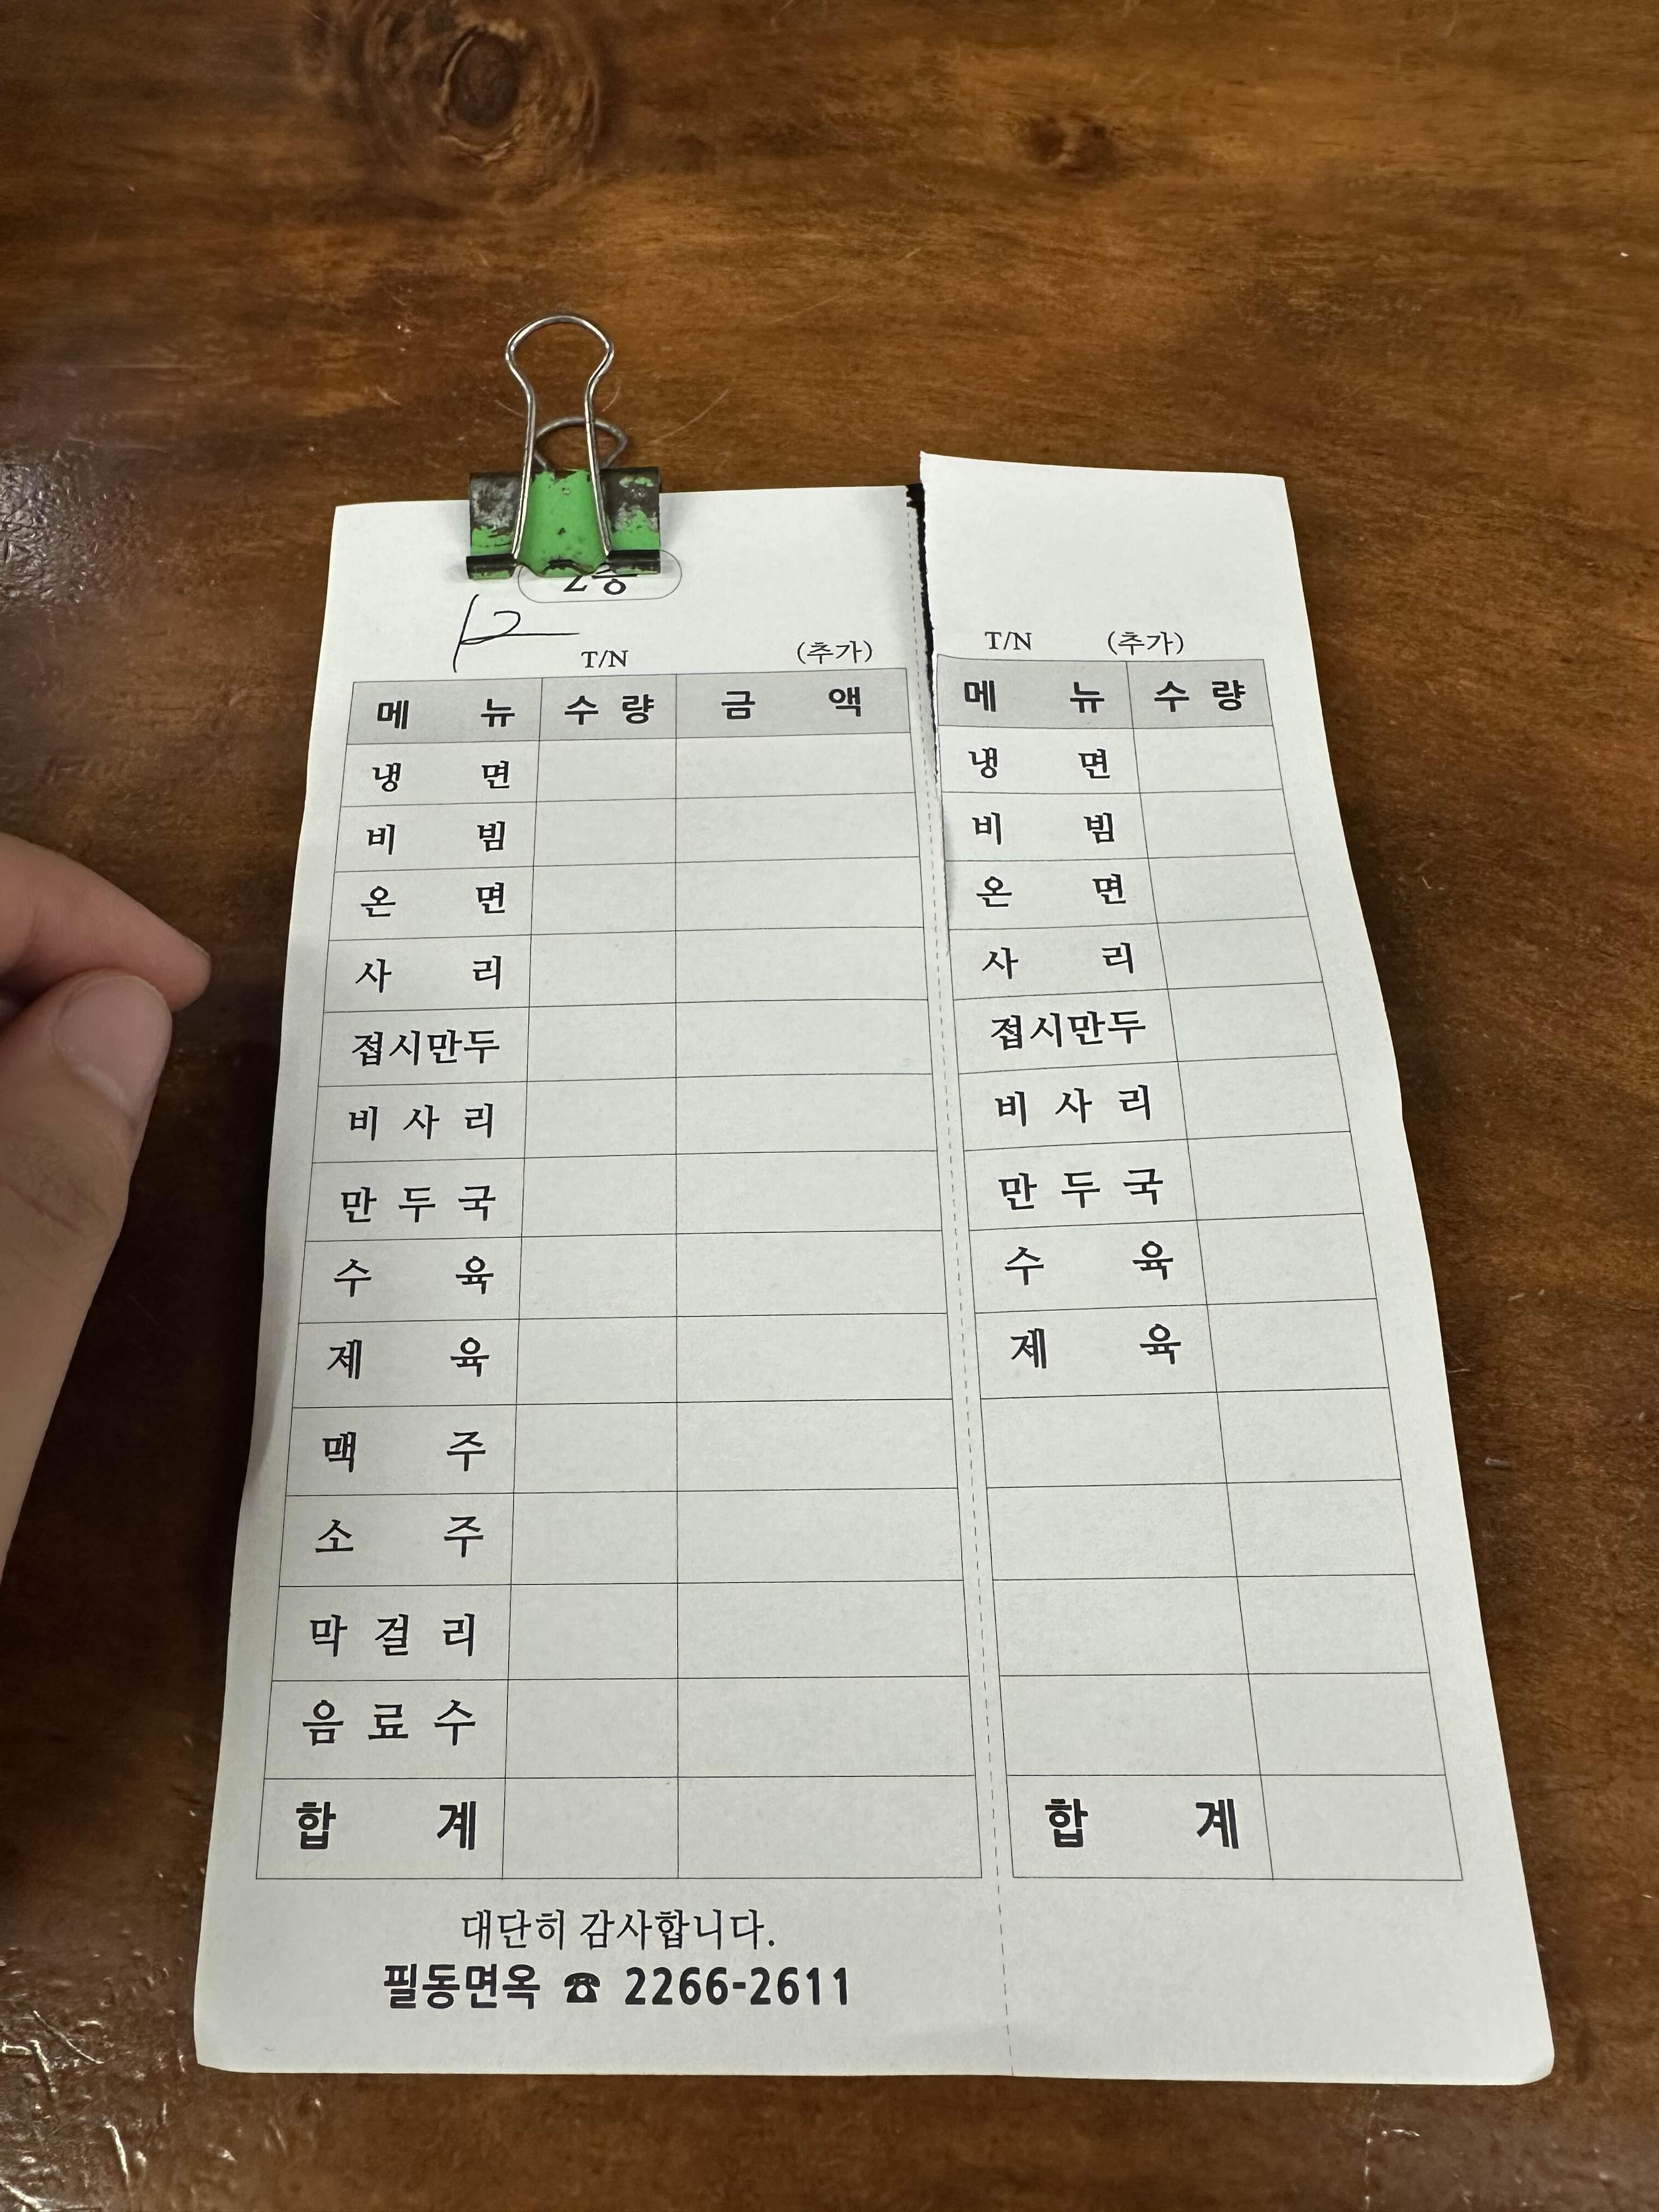 2층
12
T/N (추가)
메뉴 수량 금액
냉면
비빔
온면
사리
접시만두
비사리
만두국
수육
제육
맥주
소주
막걸리
음료수
합계
대단히 감사합니다.
필동면옥 ☎ 2266-2611
T/N (추가)
메뉴 수량
냉면
비빔
온면
사리
접시만두
비사리
만두국
수육
제육
합계